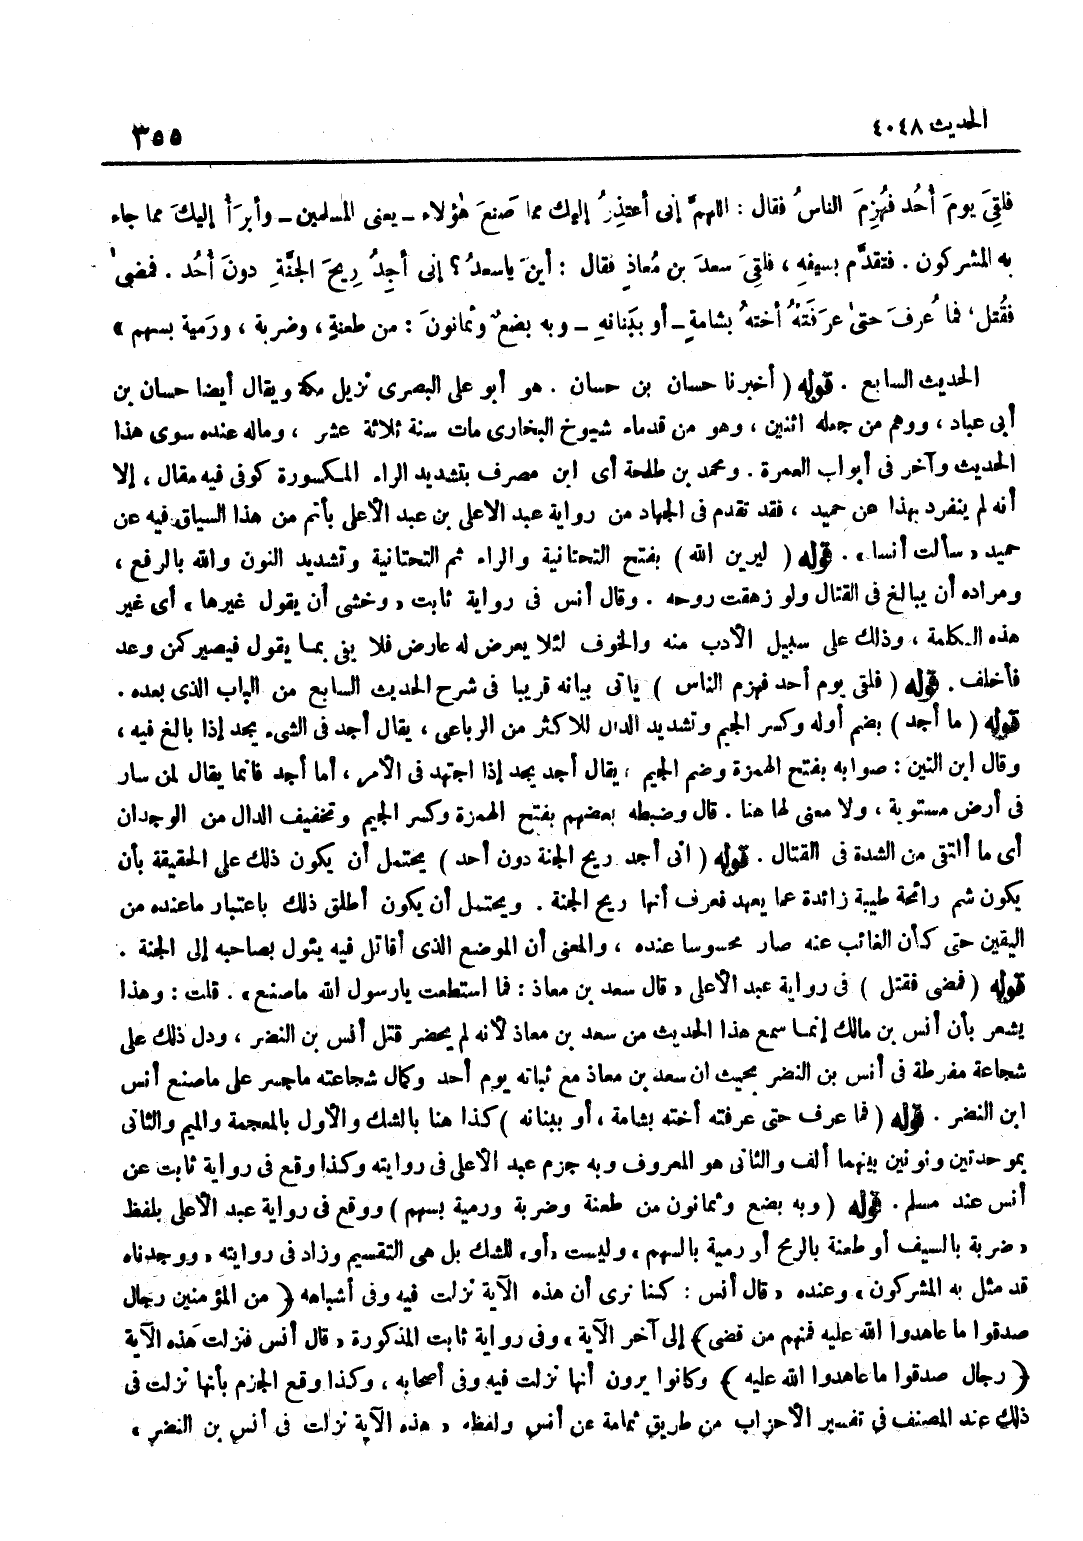 الحديث ٤٠٤٨
٣٥٥
فلقِيَ يومَ أُحُد فهُزِمَ الناسُ فقال : اللهمَّ إنى أعتذِرُ إليك مما صنعَ هٰؤلاء ــ يعنى المسلمين ــ وأبرَأُ إليكَ مما جاء
به المشركون . فتقدَّم بسيفهِ ، فلقِيَ سعدَ بن مُعاذٍ فقال : أينَ ياسعدُ ؟ إنى أجِدُ رِيحَ الجنَّةِ دونَ أُحُد . فمضىٰ
فقُتل، فما عُرفَ حتىٰ عرَفَتْهُ أختهُ بشامةٍ ــ أو ببَنانهِ ــ وبه بضعٌ وثمانونَ : من طعنةٍ ، وضربة ، ورَمية بسهم »
الحديث السابع . قوله ( أخبرنا حسان بن حسان . هو أبو على البصرى نزيل مكة ويقال أيضا حسان بن
أبى عباد ، ووهم من جعله اثنين ، وهو من قدماء شيوخ البخارى مات سنة ثلاثة عشر ، وماله عنده سوى هذا
الحديث وآخر فى أبواب العمرة . ومحمد بن طلحة أى ابن مصرف بتشديد الراء المكسورة كوفى فيه مقال ، إلا
أنه لم ينفرد بهذا عن حميد ، فقد تقدم فى الجهاد من رواية عبد الاعلى بن عبد الأعلى بأتم من هذا السياق فيه عن
حميد « سألت أنسا » . قوله ( ليرين الله ) بفتح التحتانية والراء ثم التحتانية وتشديد النون والله بالرفع ،
ومراده أن يبالغ فى القتال ولو زهقت روحه . وقال أنس فى رواية ثابت « وخشى أن يقول غيرها » أى غير
هذه الكلمة ، وذلك على سبيل الأدب منه والخوف لئلا يعرض له عارض فلا يفى بما يقول فيصير كمن وعد
فأخلف . قوله ( فلقى يوم أحد فهزم الناس ) يأتى بيانه قريبا فى شرح الحديث السابع من الباب الذى بعده .
قوله ( ما أجد ) بضم أوله وكسر الجيم وتشديد الدال للاكثر من الرباعى ، يقال أجد فى الشىء يجد إذا بالغ فيه ،
وقال ابن التين : صوابه بفتح الهمزة وضم الجيم ، يقال أجد يجد إذا اجتهد فى الأمر ، أما أجد فانما يقال لمن سار
فى أرض مستوية ، ولا معنى لها هنا . قال وضبطه بعضهم بفتح الهمزة وكسر الجيم وتخفيف الدال من الوجدان
أى ما ألتقى من الشدة فى القتال . قوله ( انى أجد ريح الجنة دون أحد ) يحتمل أن يكون ذلك على الحقيقة بأن
يكون شم رائحة طيبة زائدة عما يعهد فعرف أنها ريح الجنة . ويحتمل أن يكون أطلق ذلك باعتبار ماعنده من
اليقين حتى كأن الغائب عنه صار محسوسا عنده ، والمعنى أن الموضع الذى أقاتل فيه يئول بصاحبه إلى الجنة .
قوله ( فمضى فقتل ) فى رواية عبد الأعلى « قال سعد بن معاذ : فما استطعت يارسول الله ماصنع » . قلت : وهذا
يشعر بأن أنس بن مالك إنما سمع هذا الحديث من سعد بن معاذ لأنه لم يحضر قتل أنس بن النضر ، ودل ذلك على
شجاعة مفرطة فى أنس بن النضر بحيث ان سعد بن معاذ مع ثباته يوم أحد وكمال شجاعته ماجسر على ماصنع أنس
ابن النضر . قوله ( فما عرف حتى عرفته أخته بشامة ، أو ببنانه ) كذا هنا بالشك والأول بالمعجمة والميم والثانى
بموحدتين ونونين بينهما ألف والثانى هو المعروف وبه جزم عبد الأعلى فى روايته وكذا وقع فى رواية ثابت عن
أنس عند مسلم . قوله ( وبه بضع وثمانون من طعنة وضربة ورمية بسهم ) ووقع فى رواية عبد الأعلى بلفظ
« ضربة بالسيف أو طعنة بالرمح أو رمية بالسهم » وليست « أو » للشك بل هى للتقسيم وزاد فى روايته « ووجدناه
قد مثل به المشركون » وعنده « قال أنس : كنا نرى أن هذه الآية نزلت فيه وفى أشباهه ﴿ من المؤمنين رجال
صدقوا ما عاهدوا الله عليه فمنهم من قضى ﴾ إلى آخر الآية » وفى رواية ثابت المذكورة « قال أنس فنزلت هذه الآية
﴿ رجال صدقوا ما عاهدوا الله عليه ﴾ وكانوا يرون أنها نزلت فيه وفى أصحابه ، وكذا وقع الجزم بأنها نزلت فى
ذلك عند المصنف فى تفسير الأحزاب من طريق ثمامة عن أنس ولفظه « هذه الآية نزلت فى أنس بن النضر »